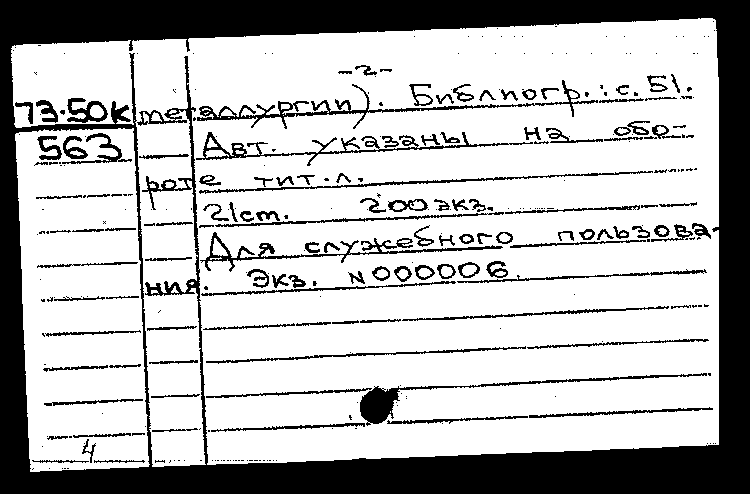 -2-
73.50к металлургии). Библиогр.: с. 51.
563 Авт. указаны на обо-
роте тит.л.
21cm. 200 экз.
Для служебного пользова-
ния. Экз. N000006.
4